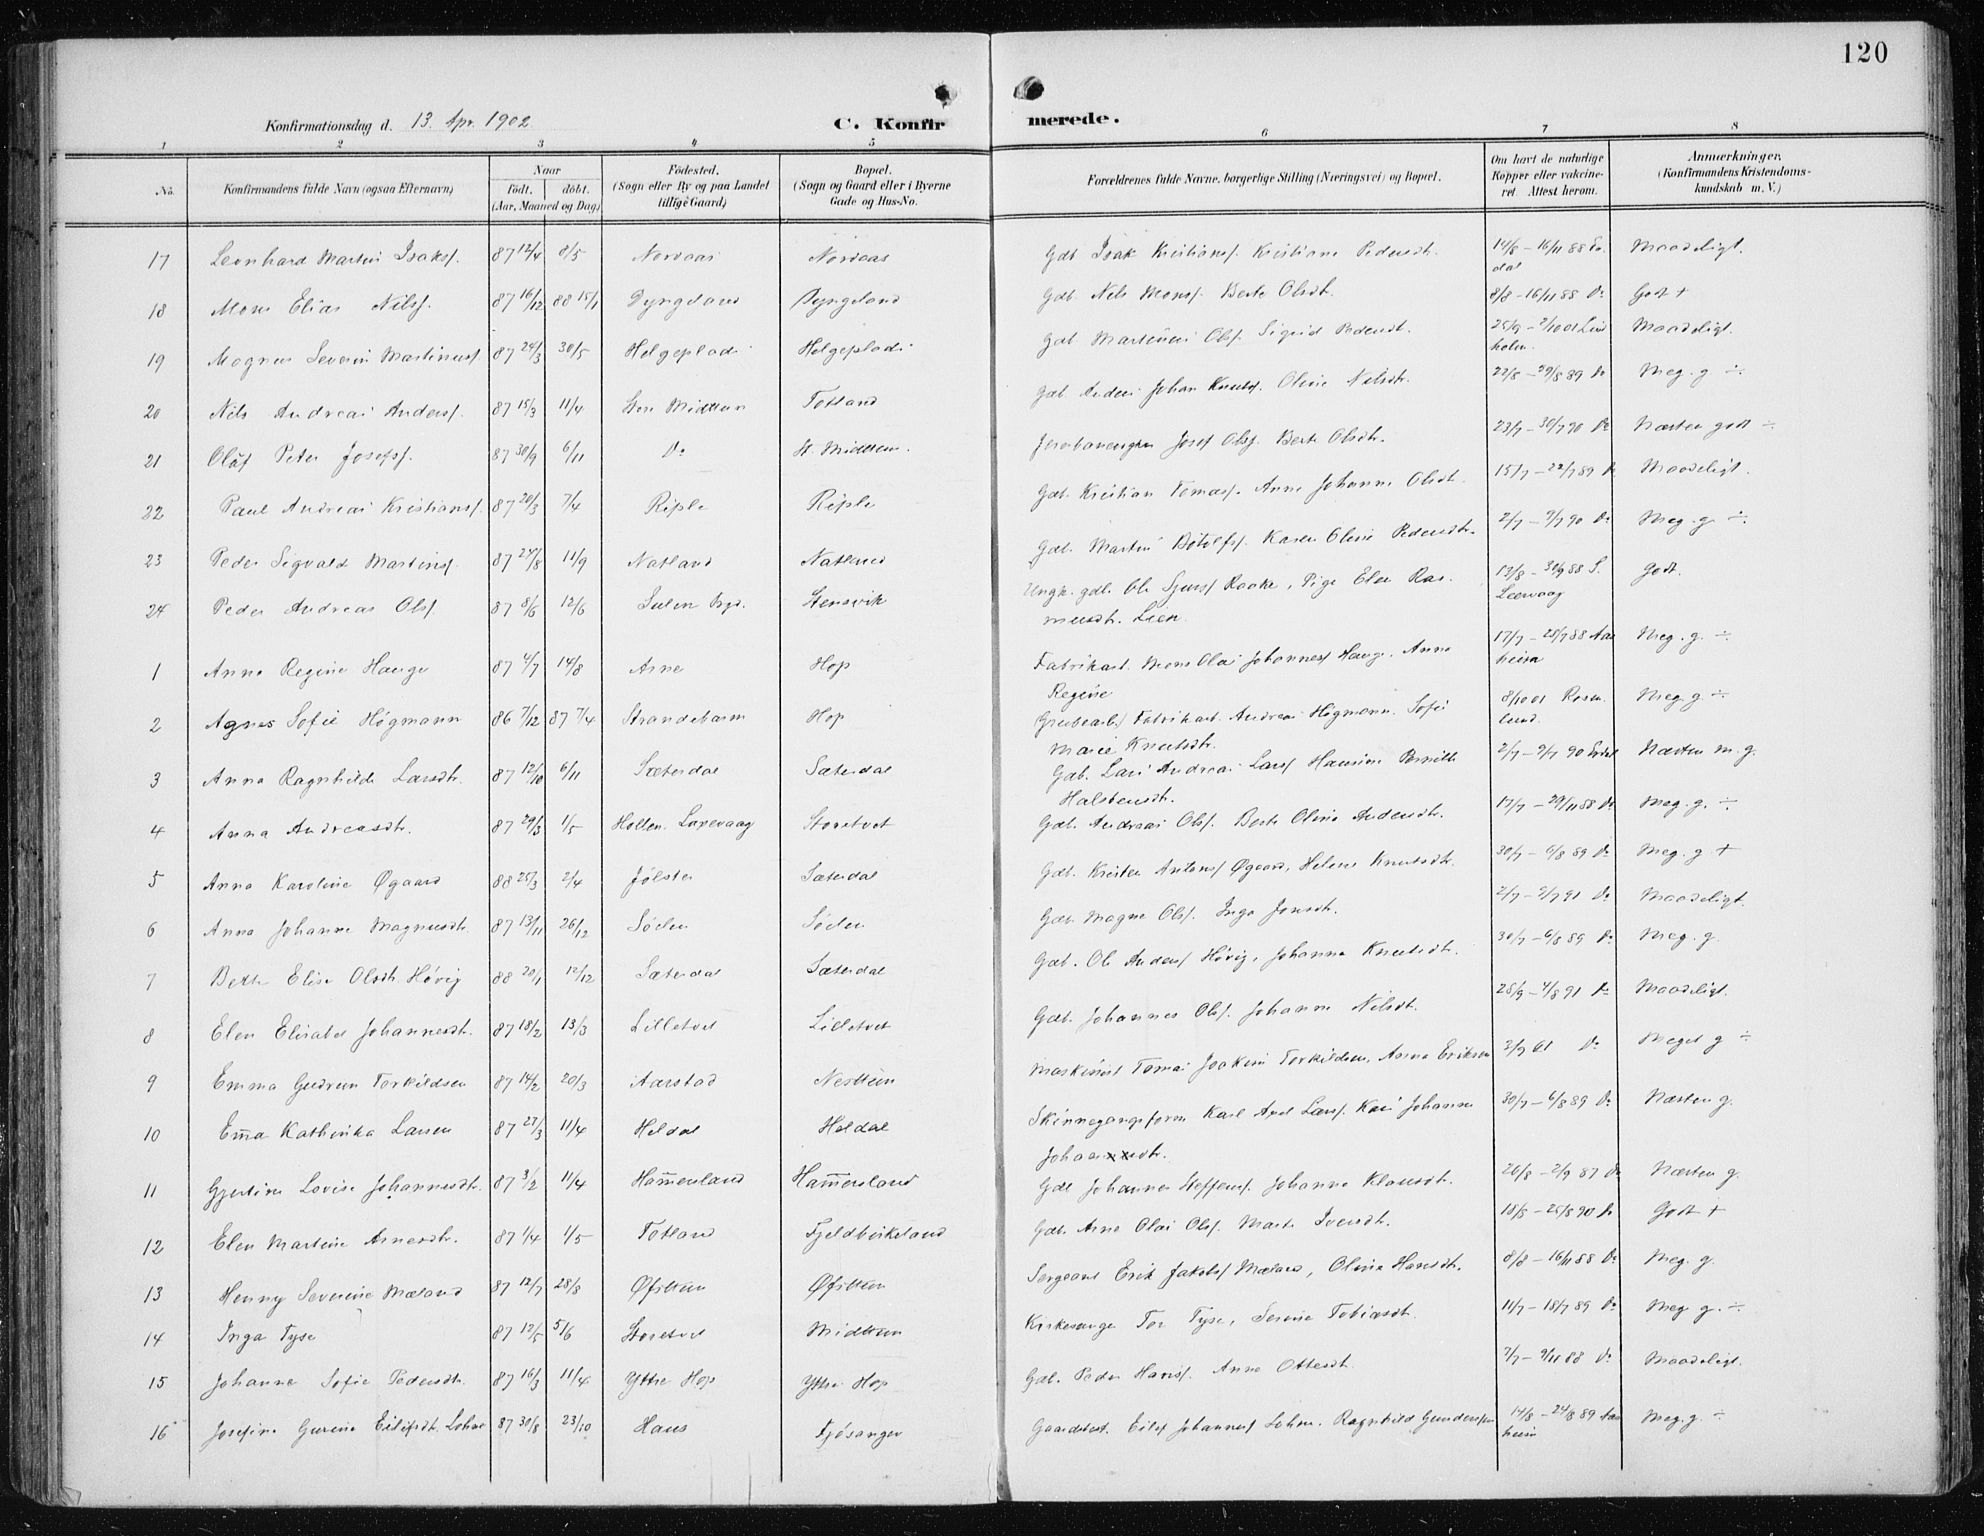 120
Konfirmationsdag d. 13. Apr. 1902
C. Konfir merede.
1 2 3 4 5 6 7 8
No. Konfirmandens fulde Navn (ogsaa Efternavn) Naar født. døbt. (Aar, Maaned og Dag) Fødested. (Sogn eller By og paa Landet tillige Gaard) Bopæl. (Sogn og Gaard eller i Byerne Gade og Hus-No. Forældrenes fulde Navne, borgerlige Stilling (Næringsvei) og Bopæl. Om havt de naturlige Kopper eller vakcineret. Attest herom. Anmærkninger. (Konfirmandens Kristendomskundskab m. V.)
17 Leonhard Martin Isaks. 87 12/4 8/5 Nordaas Nordaas Gdb. Isak Kristians. Kristiane Pedersdt. 14/8 – 16/11 88 Maadeligt.
18 Mons Elias Nils. 87 16/12 88 15/1 Dyngeland Dyngeland Gdb. Nils Mons. Berte Olsdt. 8/8 – 16/11 88 Do Godt +
19 Magnus Severin Martinus. 87 24/3 30/5 Helgeplads Helgeplads Gdb. Martinus Ols. Sigrid Pedersdt. 25/9 – 2/10 01 Lindholm. Maadeligt.
20 Nils Andreas Anders. 87 15/3 11/4 Stor Midttun Totland Gdb. Anders Johan Knuts. Oline Nilsdt. 22/8 – 29/8 89 Do Meg. g ÷
21 Olaf Peter Josefs. 87 30/9 6/11 Do St. Midttun. Josef Ols. Berte Olsdt. 23/7 – 30/7 90 Do Næsten godt ÷
22 Paul Andreas Kristians. 87 20/3 7/4 Riple Riple Gdb. Kristian Tomas. Anne Johanne Olsdt. 15/7 – 22/7 89 Do Maadeligt.
23 Peder Sigvald Martins. 87 27/8 11/9 Natland Natland Gdb. Martin Botolfs. Karen Oline Pedersdt. 2/7 – 9/7 90 Do Meg. g. ÷
24 Peder Andreas Ols. 87 8/6 12/6 Sulen Stensvik Ungk. gdb. Ole Sjurs. Raake, Pige Elen Rasmusdt. Lien. 88 S. Leervaag Godt.
1 Anna Regine Hauge 87 4/7 14/8 Arne Hop Fabrikarb. Mons Olai Johannes. Hauge. Anna Regine 17/7 – 25/7 88 Aasheim Meg. g. ÷
2 Agnes Sofie Högmann 86 7/12 87 7/4 Strandebarm Hop Fabrikarb. Andreas Högmann. Sofie Marie Knutsdt. 8/10 01 Rosenlund. Meg. g ÷
3 Anna Ragnhilda Larsdt. 87 12/10 6/11 Sæterdal Sæterdal Gdb. Lars Andreas Lars. Hansine Pernille Halstensdt. 2/7 – 9/7 90 Næsten m. g.
4 Anna Andreasdt. 87 29/3 1/5 Holten. Laxevaag Storetvet Gdb. Andreas Ols. Berte Oline Andersdt. 17/7 – 29/11 88 Do Meg. g. ÷
5 Anna Karoline Øgaard 88 25/3 2/4 Jølster Sæterdal Gdb. Krister Antons. Øgaard, Helene Knutsdt. 30/7 – 6/8 89 Do Meg. g +
6 Anna Johanne Magnusdt. 87 13/11 26/12 Sôdln Sôdln Gdb. Magne Ols. Inga Jonsdt. 2/7 – 9/7 91 Do Maadeligt.
7 Berte Elise Olsdt. Høvig 88 20/1 12/12 Sæterdal Sæterdal Gdb. Ole Anders. Høvig, Johanna Knutsdt. 30/7 – 6/8 89 Do Meg. g.
8 Elen Elisabet Johannesdt. 87 18/2 13/3 Lilletvet Lilletvet Gdb. Johannes Ols. Johanne Nilsdt. 28/9 – 4/8 91 Do Maadeligt.
9 Emma Gudrun Torkildsen 87 14/2 20/3 Aarstad Nesttun Maskinist Tomas Joakim Torkildsen, Anna Eriksen 3/9 61 Do Meget g ÷
10 Em̄a Kathinka Larsen 87 27/3 11/4 Heldal Heldal Skinnegangsform Karl Axel Lars. Kari Johanne Johan××sdt. 30/7 – 6/8 89 Do Næsten g.
11 Gjertine Lovise Johannesdt. 87 3/2 11/4 Ham̄ersland Ham̄ersland Gdb Johannes Steffens. Johanne Klausdt. 26/8 – 2/9 87 Do Næsten g.
12 Elen Martine Arnesdt. 87 1/4 1/5 Totland Fjeldbirkeland Gdb. Arne Olai Ols. Marte Iversdt. 18/8 – 25/8 90 Do Godt +
13 Henny Severine Mæland 87 12/7 28/8 Øfsttun Øfsttun Sergeant Erik Jakobs. Mæland, Oline Hansdt. 8/8 – 16/11 88 Do Meg. g.
14 Inga Tyse 87 12/5 5/6 Storetvet Midttun Kirkesanger Tor Tyse, Serine Tobiasdt. 11/7 – 18/7 89 Do Meg. g. ÷
15 Johanne Sofie Pedersdt. 87 16/3 11/4 Yttre Hop Yttre Hop Gdb. Peder Hans. Anna Ottesdt. 7/7 – 9/11 88 Do Maadeligt.
16 Josefine Gurine Eilifsdt. Lohne 87 30/8 23/10 Haus Fjøsanger Gaardsbest. Eilif Johannes. Lohne. Ragnhild Gundersen 14/8 – 24/8 89 Aasheim Meg. g. ÷